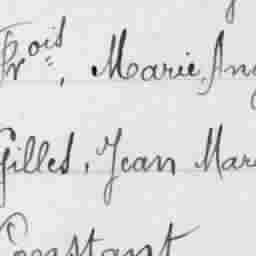 Frois, Marie, Ang
Gilles, Jean Mar
Constant